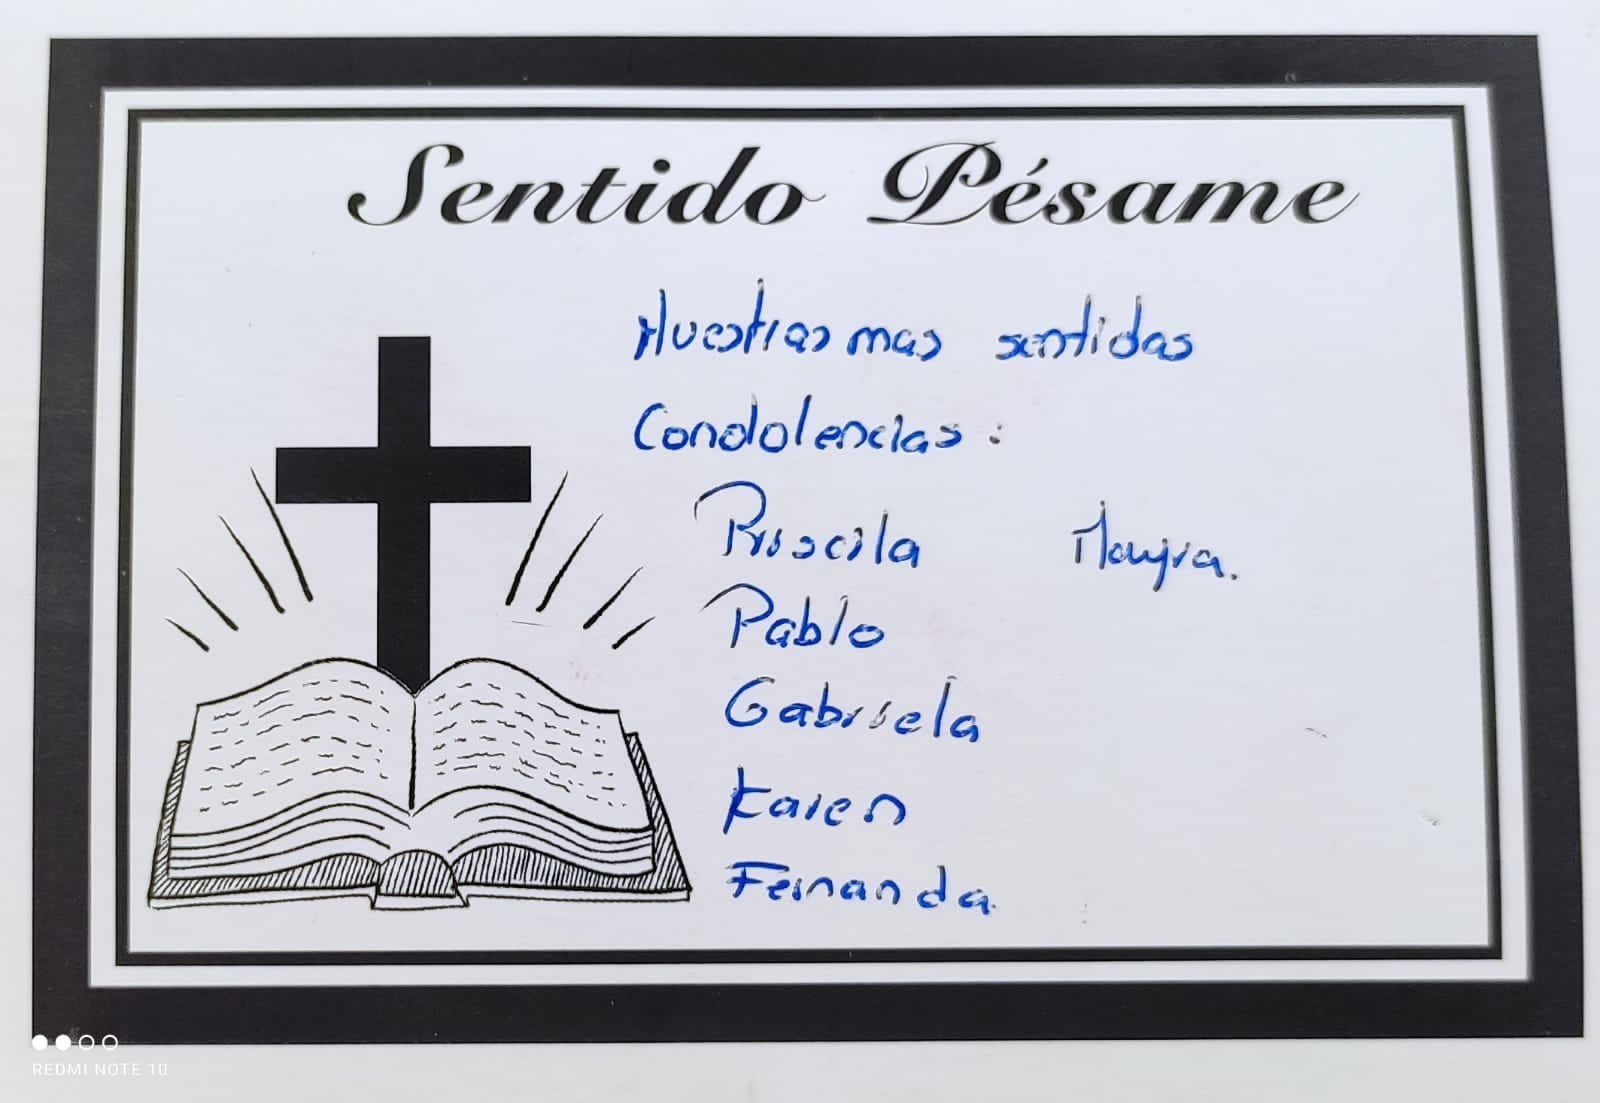 Sentido Pésame
Nuestras mas sentidas
Condolencias:
Priscila Mayra.
Pablo
Gabriela
Karen
Fernanda.
REDMI NOTE 10